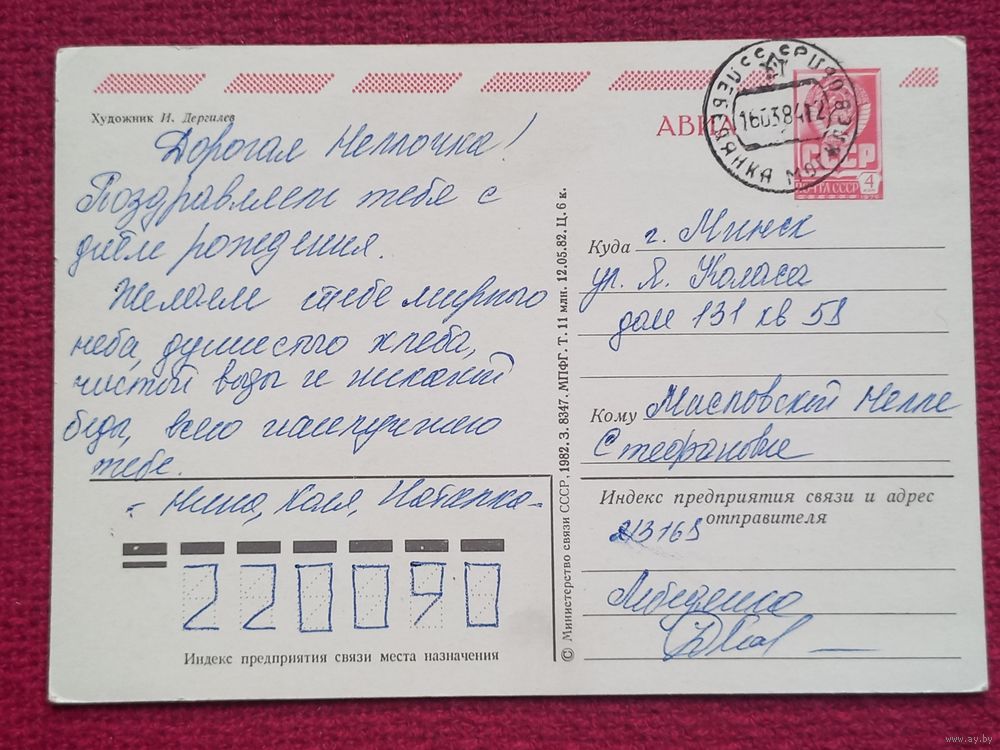 Художник И. Дергилев
АВИА
160384 12
СССР
ПОЧТА СССР
4
Дорогая Неллочка!
Поздравляем тебя с
днём рождения.
Желаем тебе мирного
неба, душистого хлеба,
чистой воды и никакой
беды, всего наилучшего
тебе.
- Нина, Коля, Наталка -
220090
Индекс предприятия связи места назначения
© Министерство связи СССР. 1982. З. 8347. МПФГ. Т. 11 млн. 12.05.82. Ц. 6 к.
Куда г. Минск
ул. Я. Коласа
дом 131 кв 59
Кому Масловской Нелле
Стефановне
Индекс предприятия связи и адрес
отправителя
Лебеденко
www.ay.by